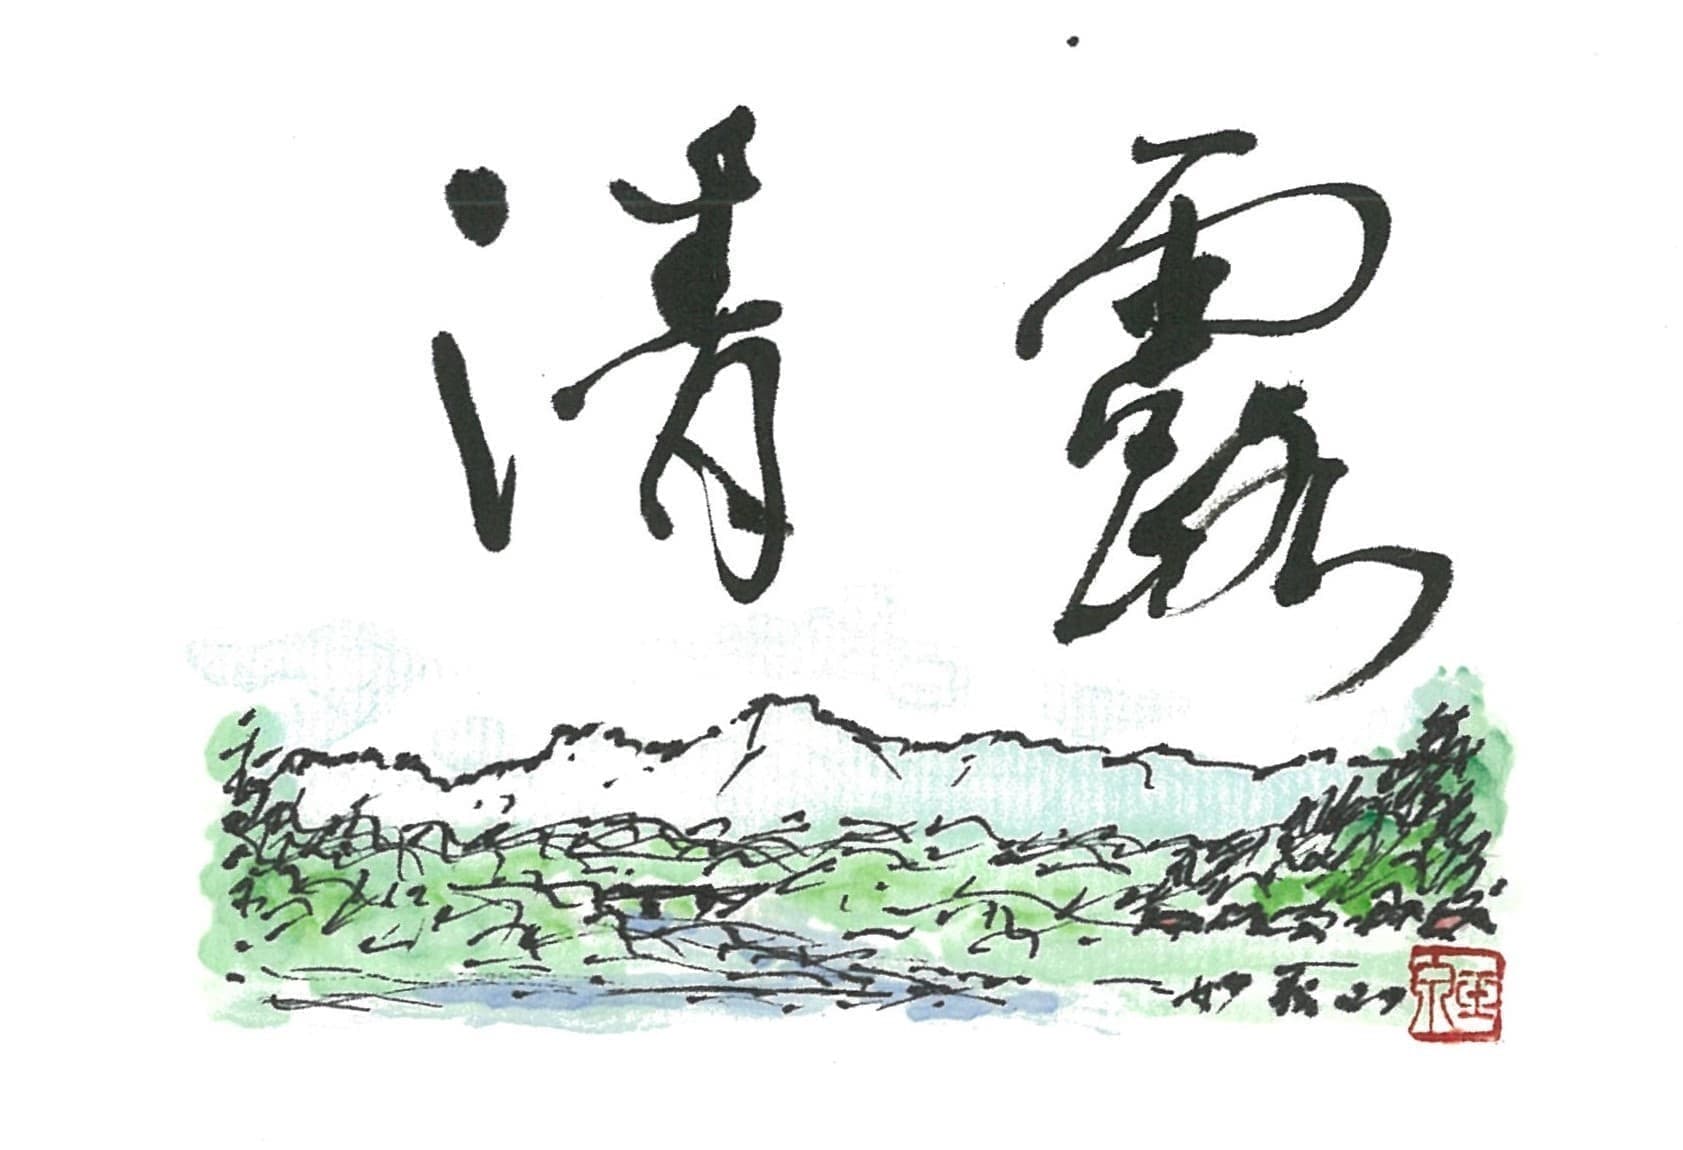 清露
妙義山